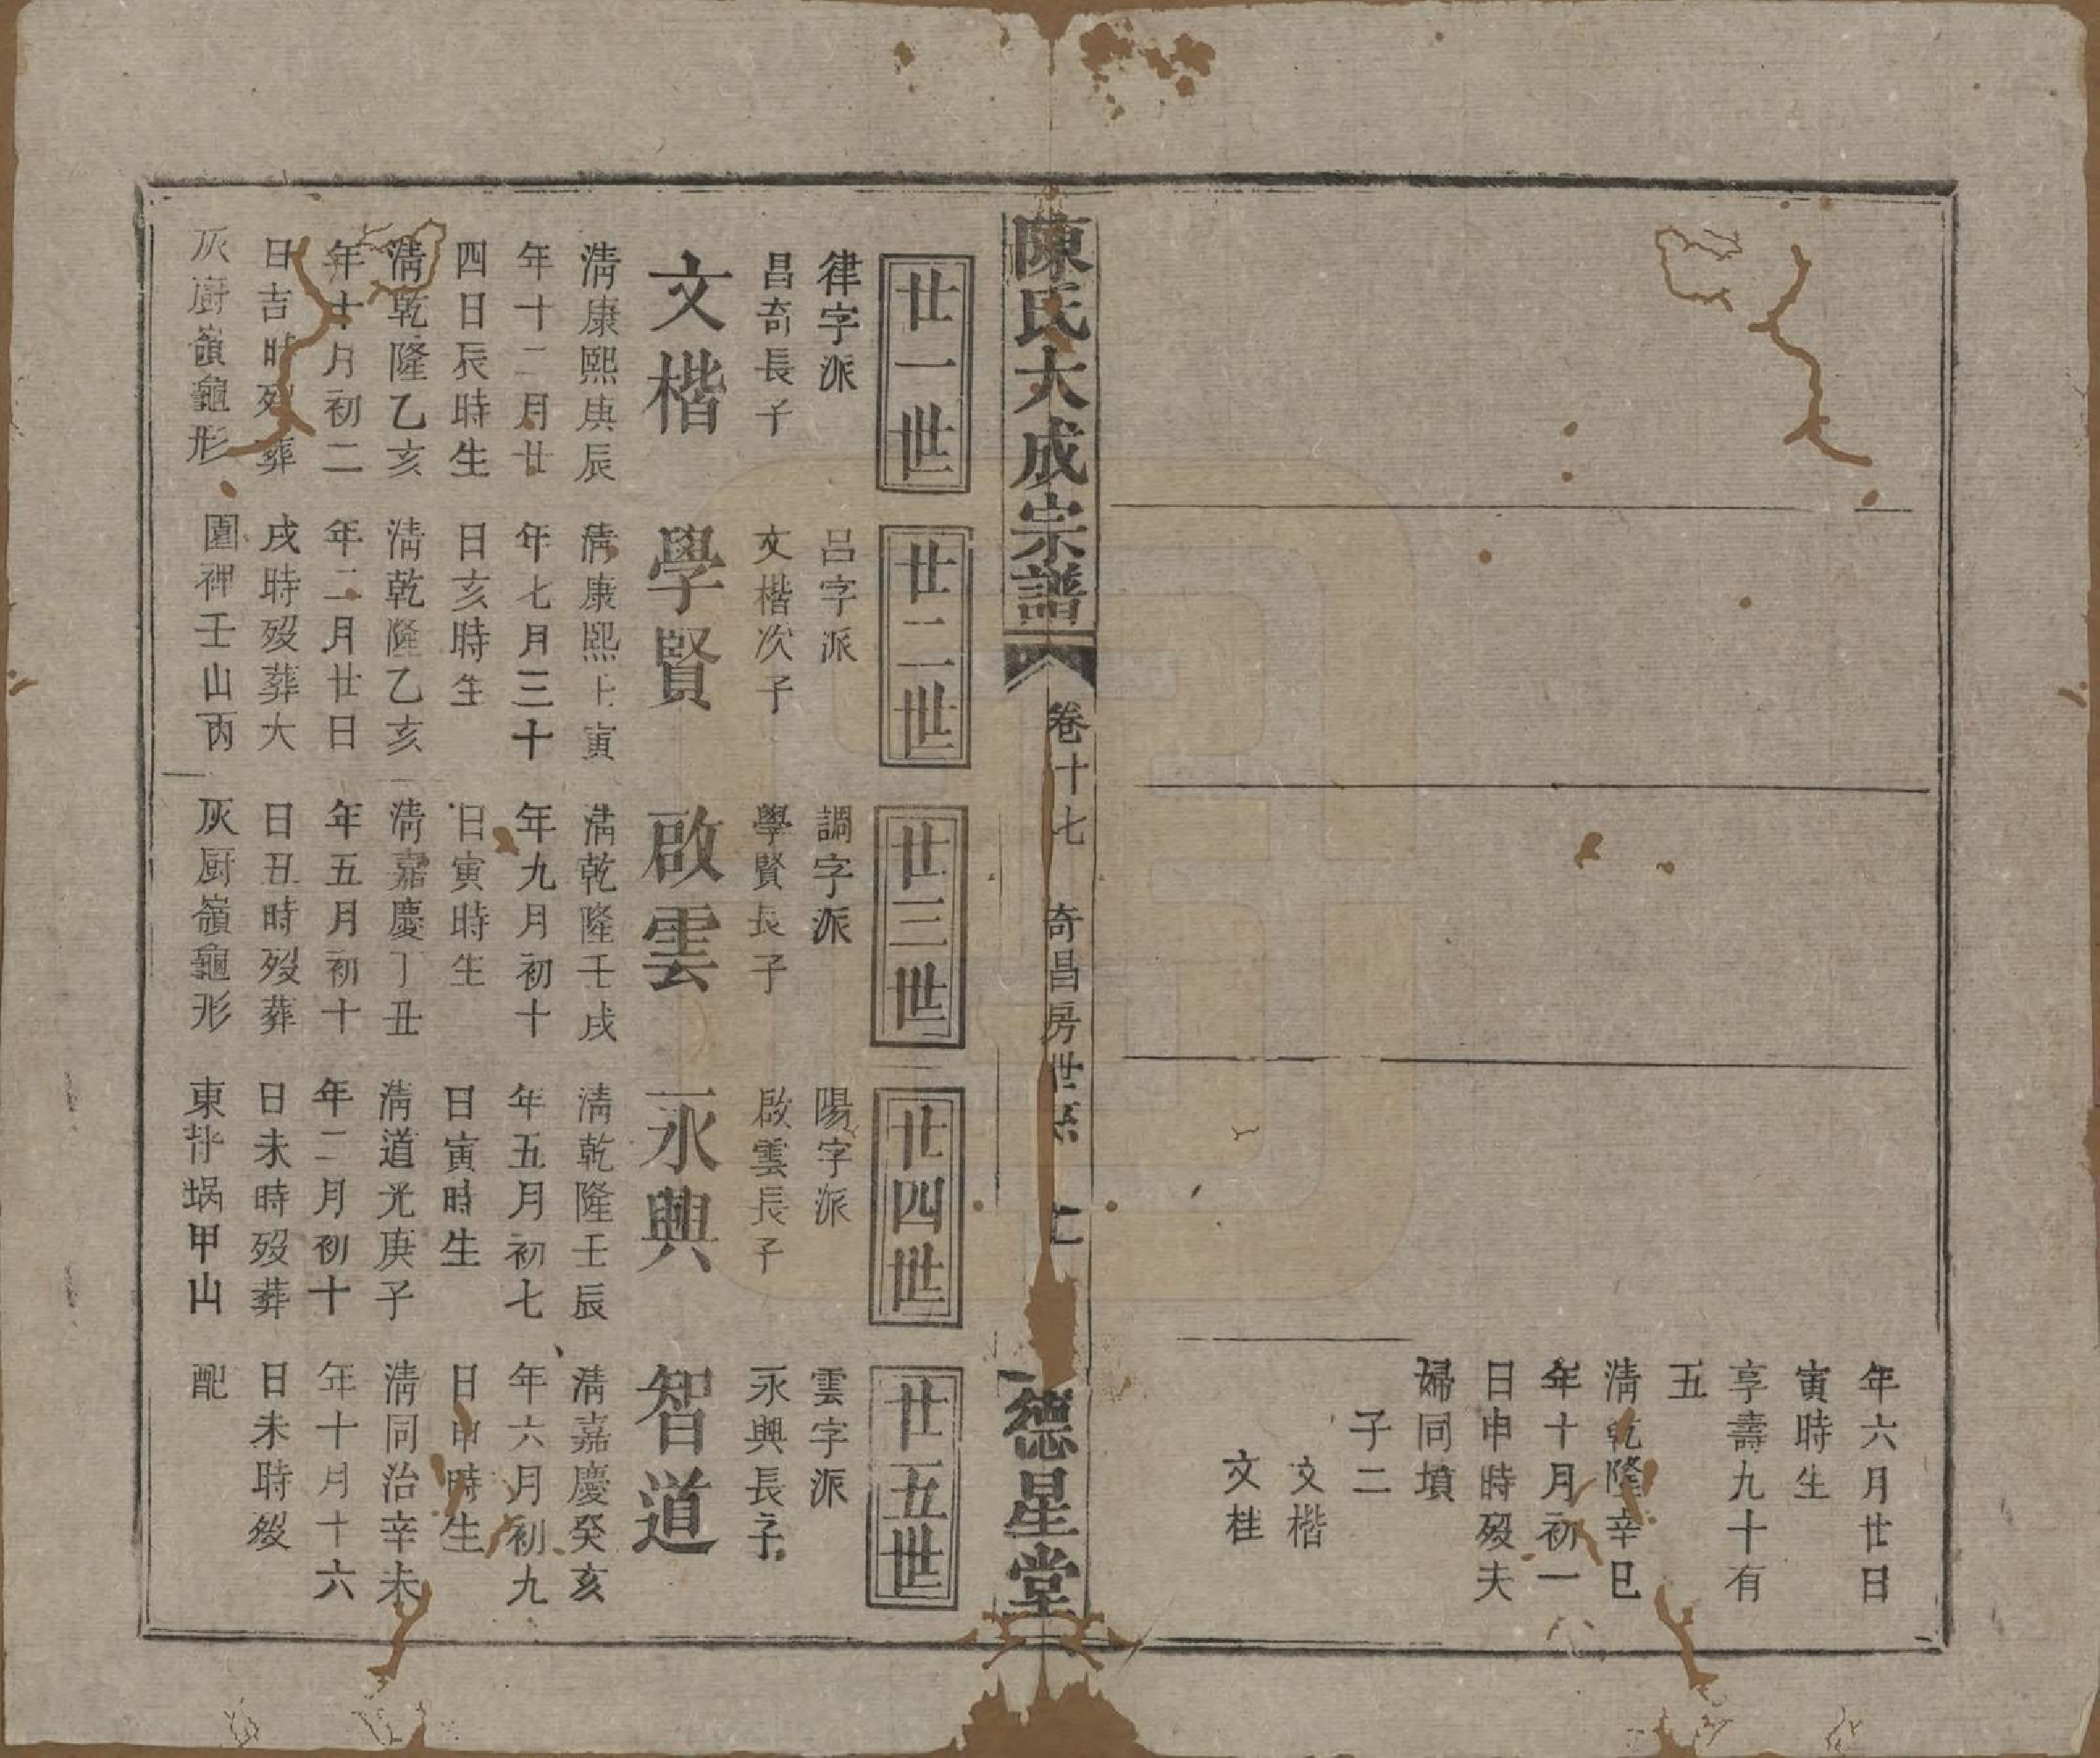 年六月廿日
寅時生
享壽九十有
五
清乾隆辛巳
年十月初一
日申時歿夫
婦同墳
子二
文楷
文桂
陳氏大成宗譜
卷十七
奇昌房世系
德星堂
廿一世
律字派
昌奇長子
文楷
清康熙庚辰
年十二月廿
四日辰時生
清乾隆乙亥
年十月初二
日吉時歿葬
灰廚嶺龜形
廿二世
呂字派
文楷次子
學賢
清康熙壬寅
年七月三十
日亥時生
清乾隆乙亥
年二月廿日
戌時歿葬大
園裡壬山丙
廿三世
調字派
學賢長子
啟雲
清乾隆壬戌
年九月初十
日寅時生
清嘉慶丁丑
年五月初十
日丑時歿葬
灰厨嶺龜形
廿四世
陽字派
啟雲長子
永興
清乾隆壬辰
年五月初七
日寅時生
清道光庚子
年二月初十
日未時歿葬
東 堝甲山
廿五世
雲字派
永興長子
智道
清嘉慶癸亥
年六月初九
日申時生
清同治辛未
年十月十六
日未時歿
配